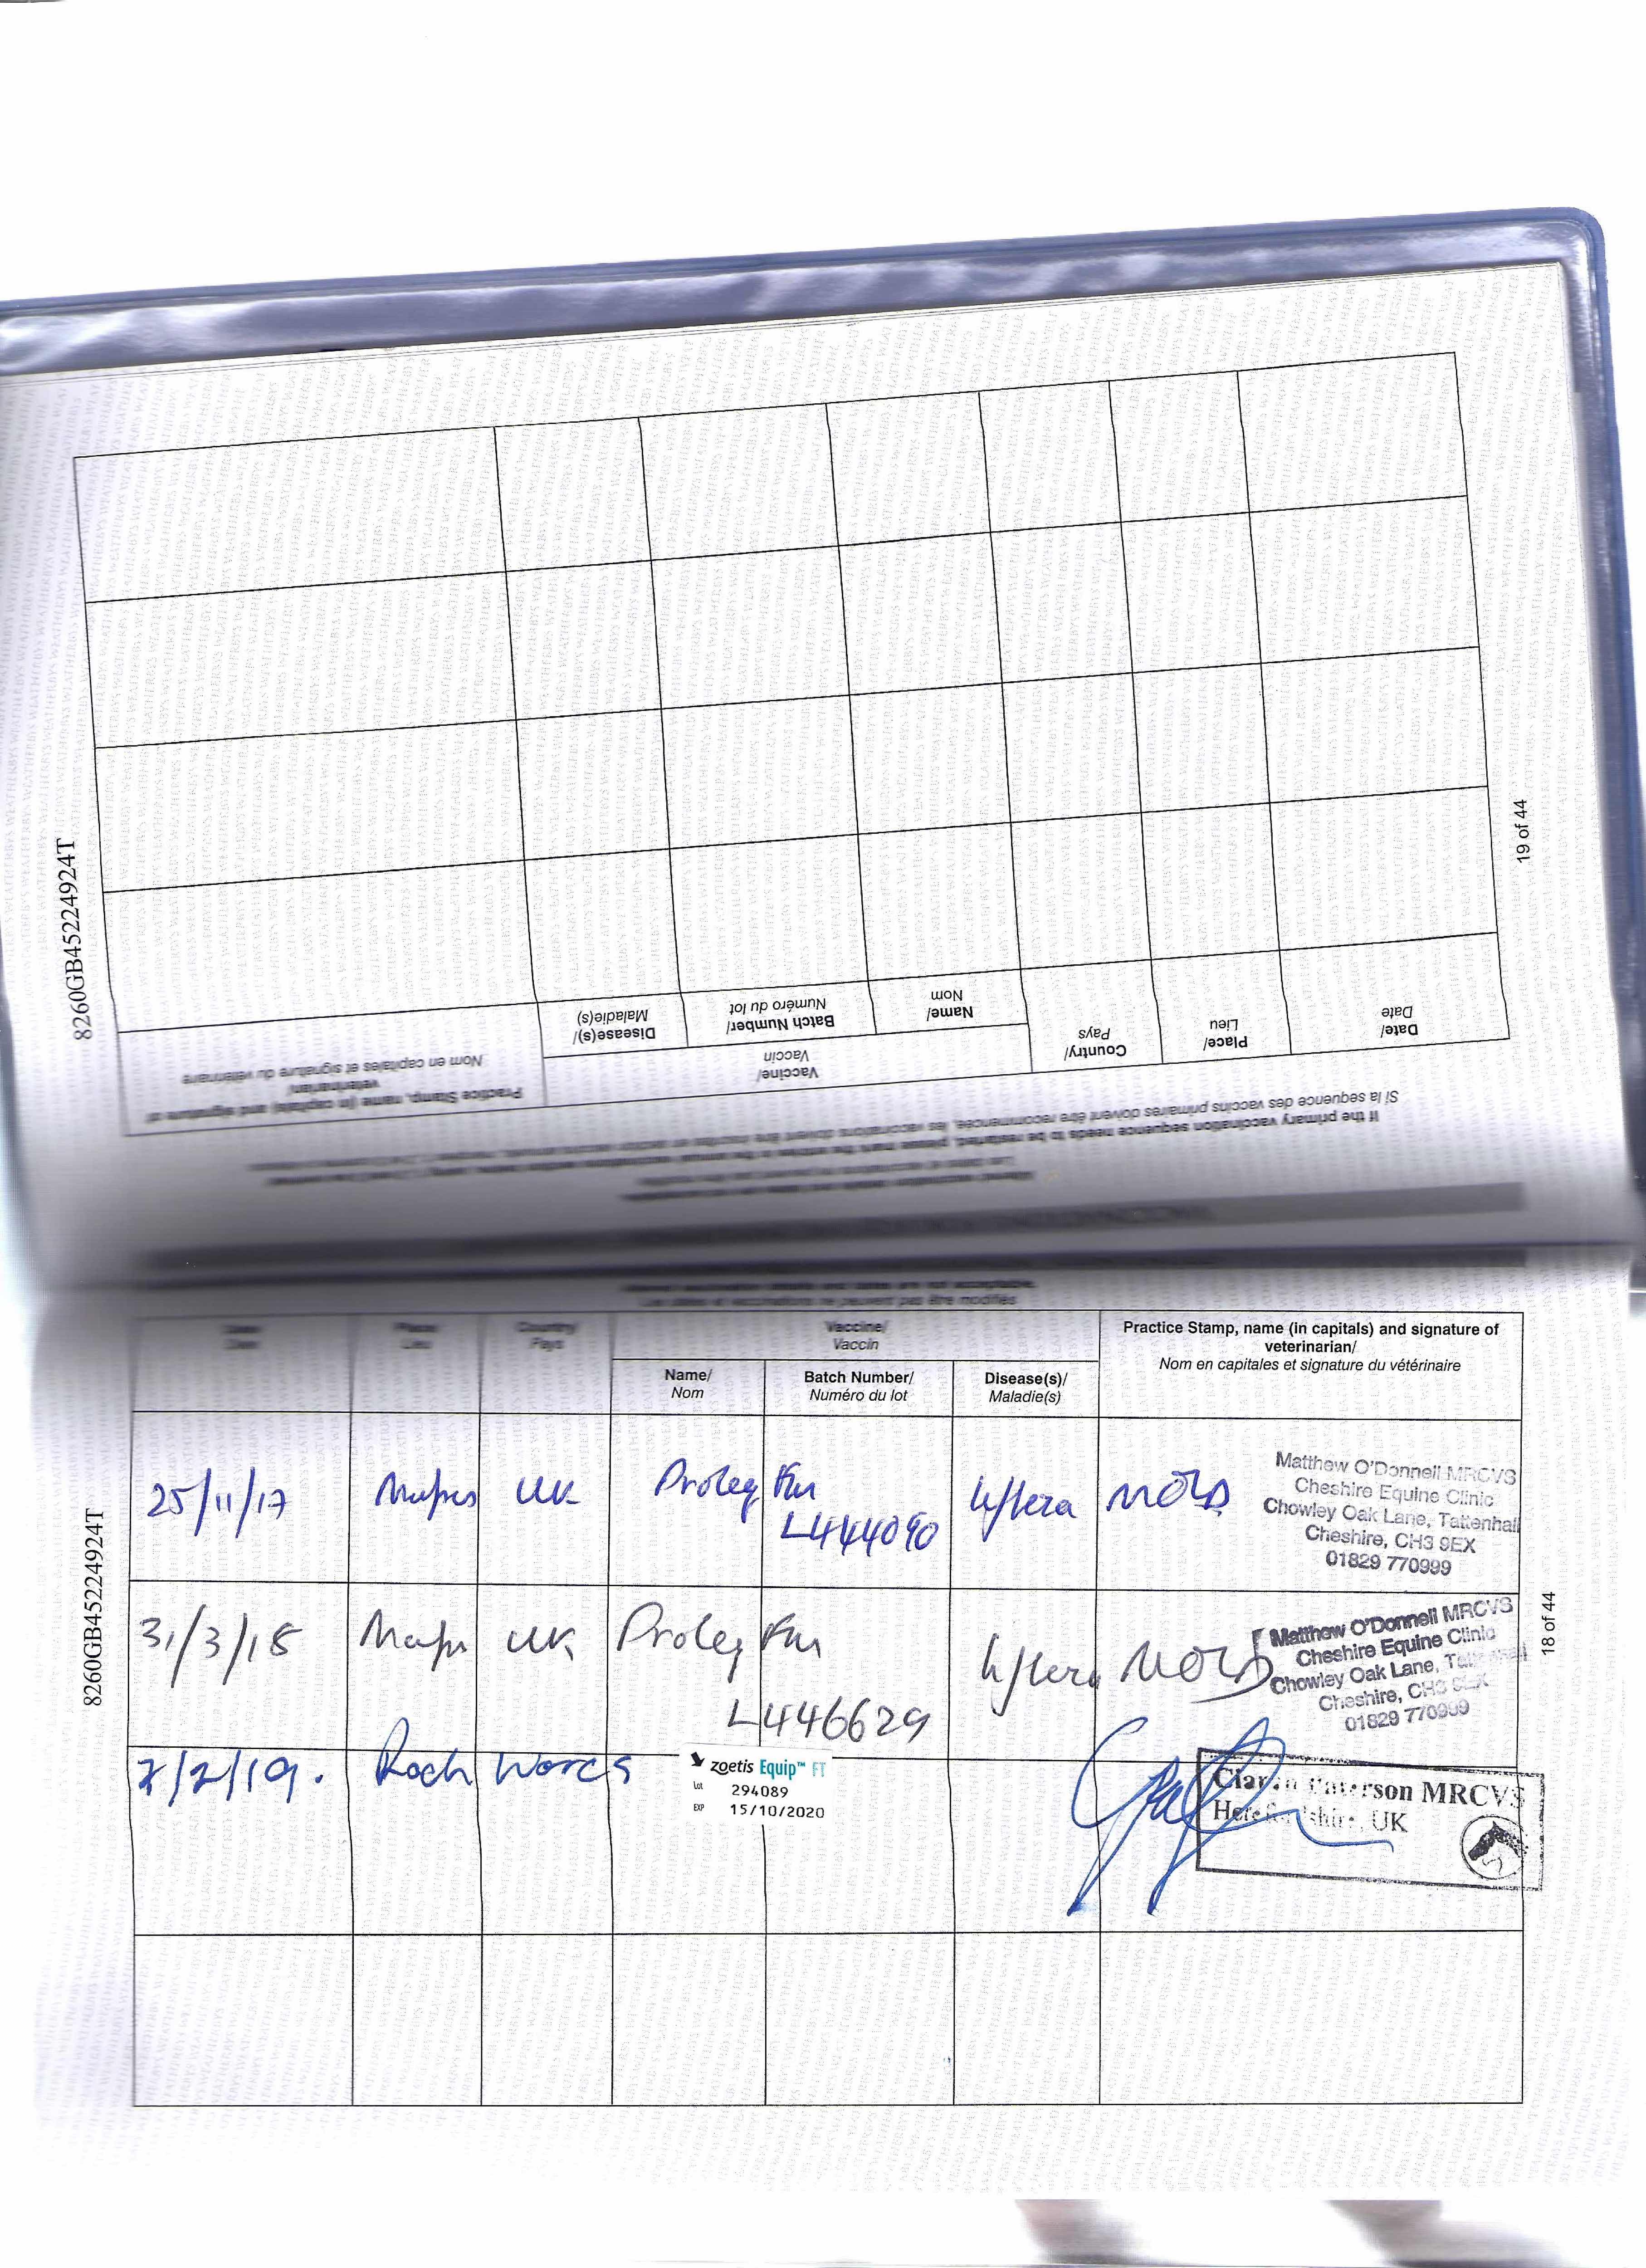 8260GB45224924T
19 of 44
Si la sequence des vaccins primaires doivent être recommencées, les vaccinations doivent être
If the primary vaccination sequence needs to be restarted, please mark the entries in the
Date/ Date
Place/ Lieu
Country/ Pays
Vaccine/ Vaccin
Name/ Nom
Batch Number/ Numéro du lot
Disease(s)/ Maladie(s)
Practice Stamp, name (in capitals) and signature of
veterinarian/
Nom en capitales et signature du vétérinaire
8260GB45224924T
18 of 44
Les dates et vaccinations ne peuvent pas être modifiés
Date/ Date
Place/ Lieu
Country/ Pays
Vaccine/ Vaccin
Name/ Nom
Batch Number/ Numéro du lot
Disease(s)/ Maladie(s)
Practice Stamp, name (in capitals) and signature of
veterinarian/
Nom en capitales et signature du vétérinaire
25/11/17 UK Proteq Flu L444090
Matthew O'Donnell MRCVS
Cheshire Equine Clinic
Chowley Oak Lane, Tattenhall
Cheshire, CH3 9EX
01829 770999
31/3/18 UK Proteq Flu L446629
Matthew O'Donnell MRCVS
Cheshire Equine Clinic
Chowley Oak Lane, Tattenhall
Cheshire, CH3 9EX
01829 770999
7/2/19. Rock Worcs
zoetis Equip™ FT
Lot 294089
EXP 15/10/2020
Paterson MRCVS
Herefordshire, UK